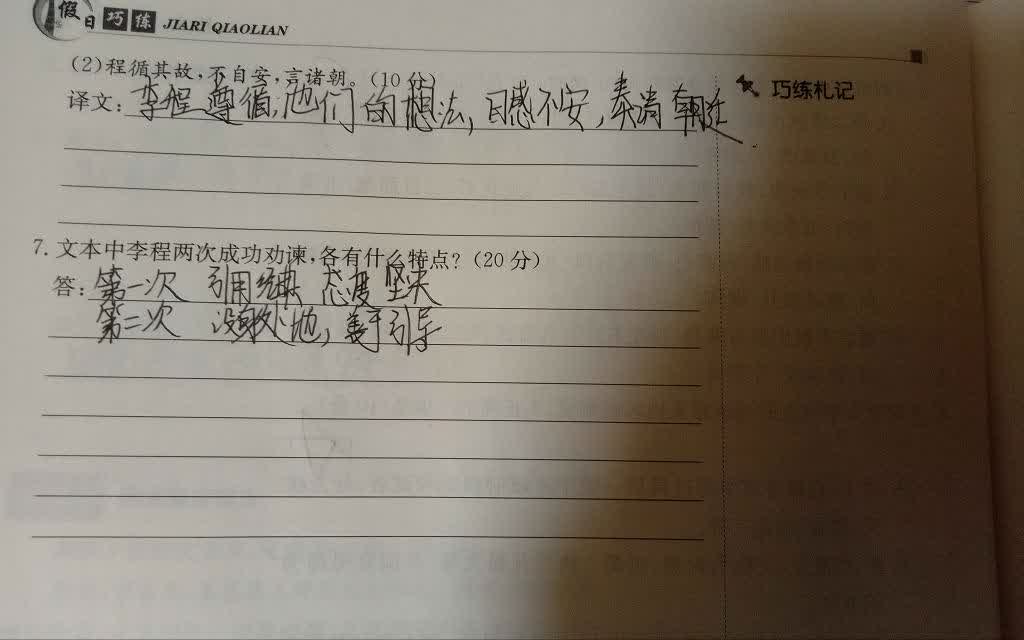 假日巧练 JIARI QIAOLIAN
(2)程循其故,不自安,言诸朝。(10分)
译文:李程遵循,他们的想法,日感不安,奏清朝廷
巧练札记
7.文本中李程两次成功劝谏,各有什么特点?(20分)
答:第一次 引用经典 态度坚决
第二次 设身处地,善于引导